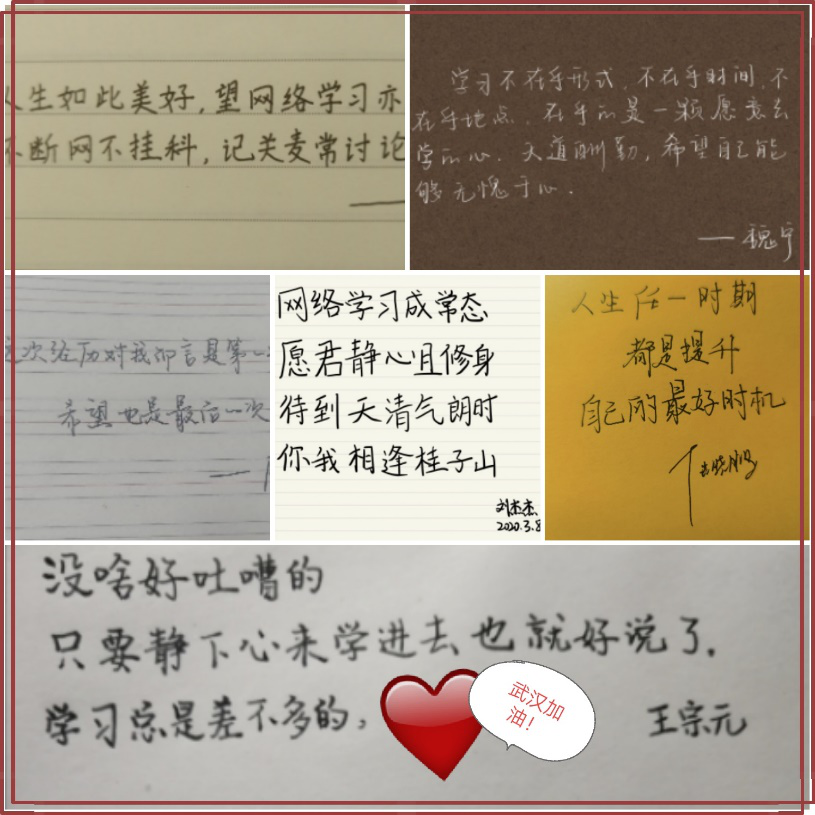 人生如此美好,望网络学习亦
不断网不挂科,记关麦常讨论
学习不在乎形式,不在乎时间,不
在乎地点,在乎的是一颗愿意去
学的心.天道酬勤,希望自己能
够无愧于心.
——魏宁
这次经历对我而言是第一
希望也是最后一次
网络学习成常态
愿君静心且修身
待到天清气朗时
你我相逢桂子山
刘杰杰
2020.3.8
人生任一时期
都是提升
自己的最好时机
没啥好吐嘈的
只要静下心来学进去也就好说了.
学习总是差不多的,
王宗元
武汉加
油!